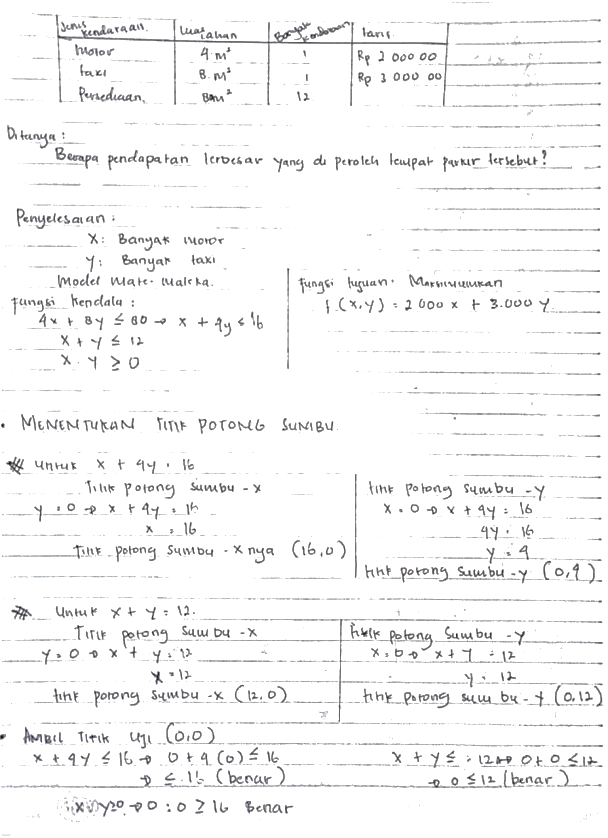 Jenis kendaraan. Luas Lahan Banyak kendaraan tarif
Motor 4 m² 1 Rp 2 000 00
taxi 8 m² 1 Rp 3 000 00
Persediaan, 80m² 12
Ditanya :
Berapa pendapatan terbesar yang di peroleh tempat parkir tersebut?
Penyelesaian :
X : Banyak motor
y : Banyak taxi
Model Mate-matika.
fungsi kendala :
4x + 8y ≤ 80 → x + 4y ≤ 16
x + y ≤ 12
x . y ≥ 0
fungsi tujuan . Maksimumkan
f (x,y) = 2000 x + 3.000 y
• MENENTUKAN TITIK POTONG SUMBU.
untuk x + 4y = 16
Titik potong sumbu - x
y = 0 → x + 4y = 16
x = 16
titik potong sumbu - x nya (16,0)
titik potong sumbu - y
x = 0 → x + 4y = 16
4y = 16
y = 4
titik potong sumbu - y (0,4)
Untuk x + y = 12.
Titik potong sumbu - x
y = 0 → x + y = 12
x = 12
titik potong sumbu - x (12,0)
Titik potong sumbu - y
x = 0 → x + y = 12
y = 12
titik potong sumbu - y (0,12)
• AMBIL TITIK UJI (0,0)
x + 4y ≤ 16 → 0 + 4 (0) ≤ 16
→ ≤ 16 (benar)
x + y ≤ 12 → 0 + 0 ≤ 12
→ 0 ≤ 12 (benar)
x . y ≥ 0 → 0 : 0 ≥ 16 Benar